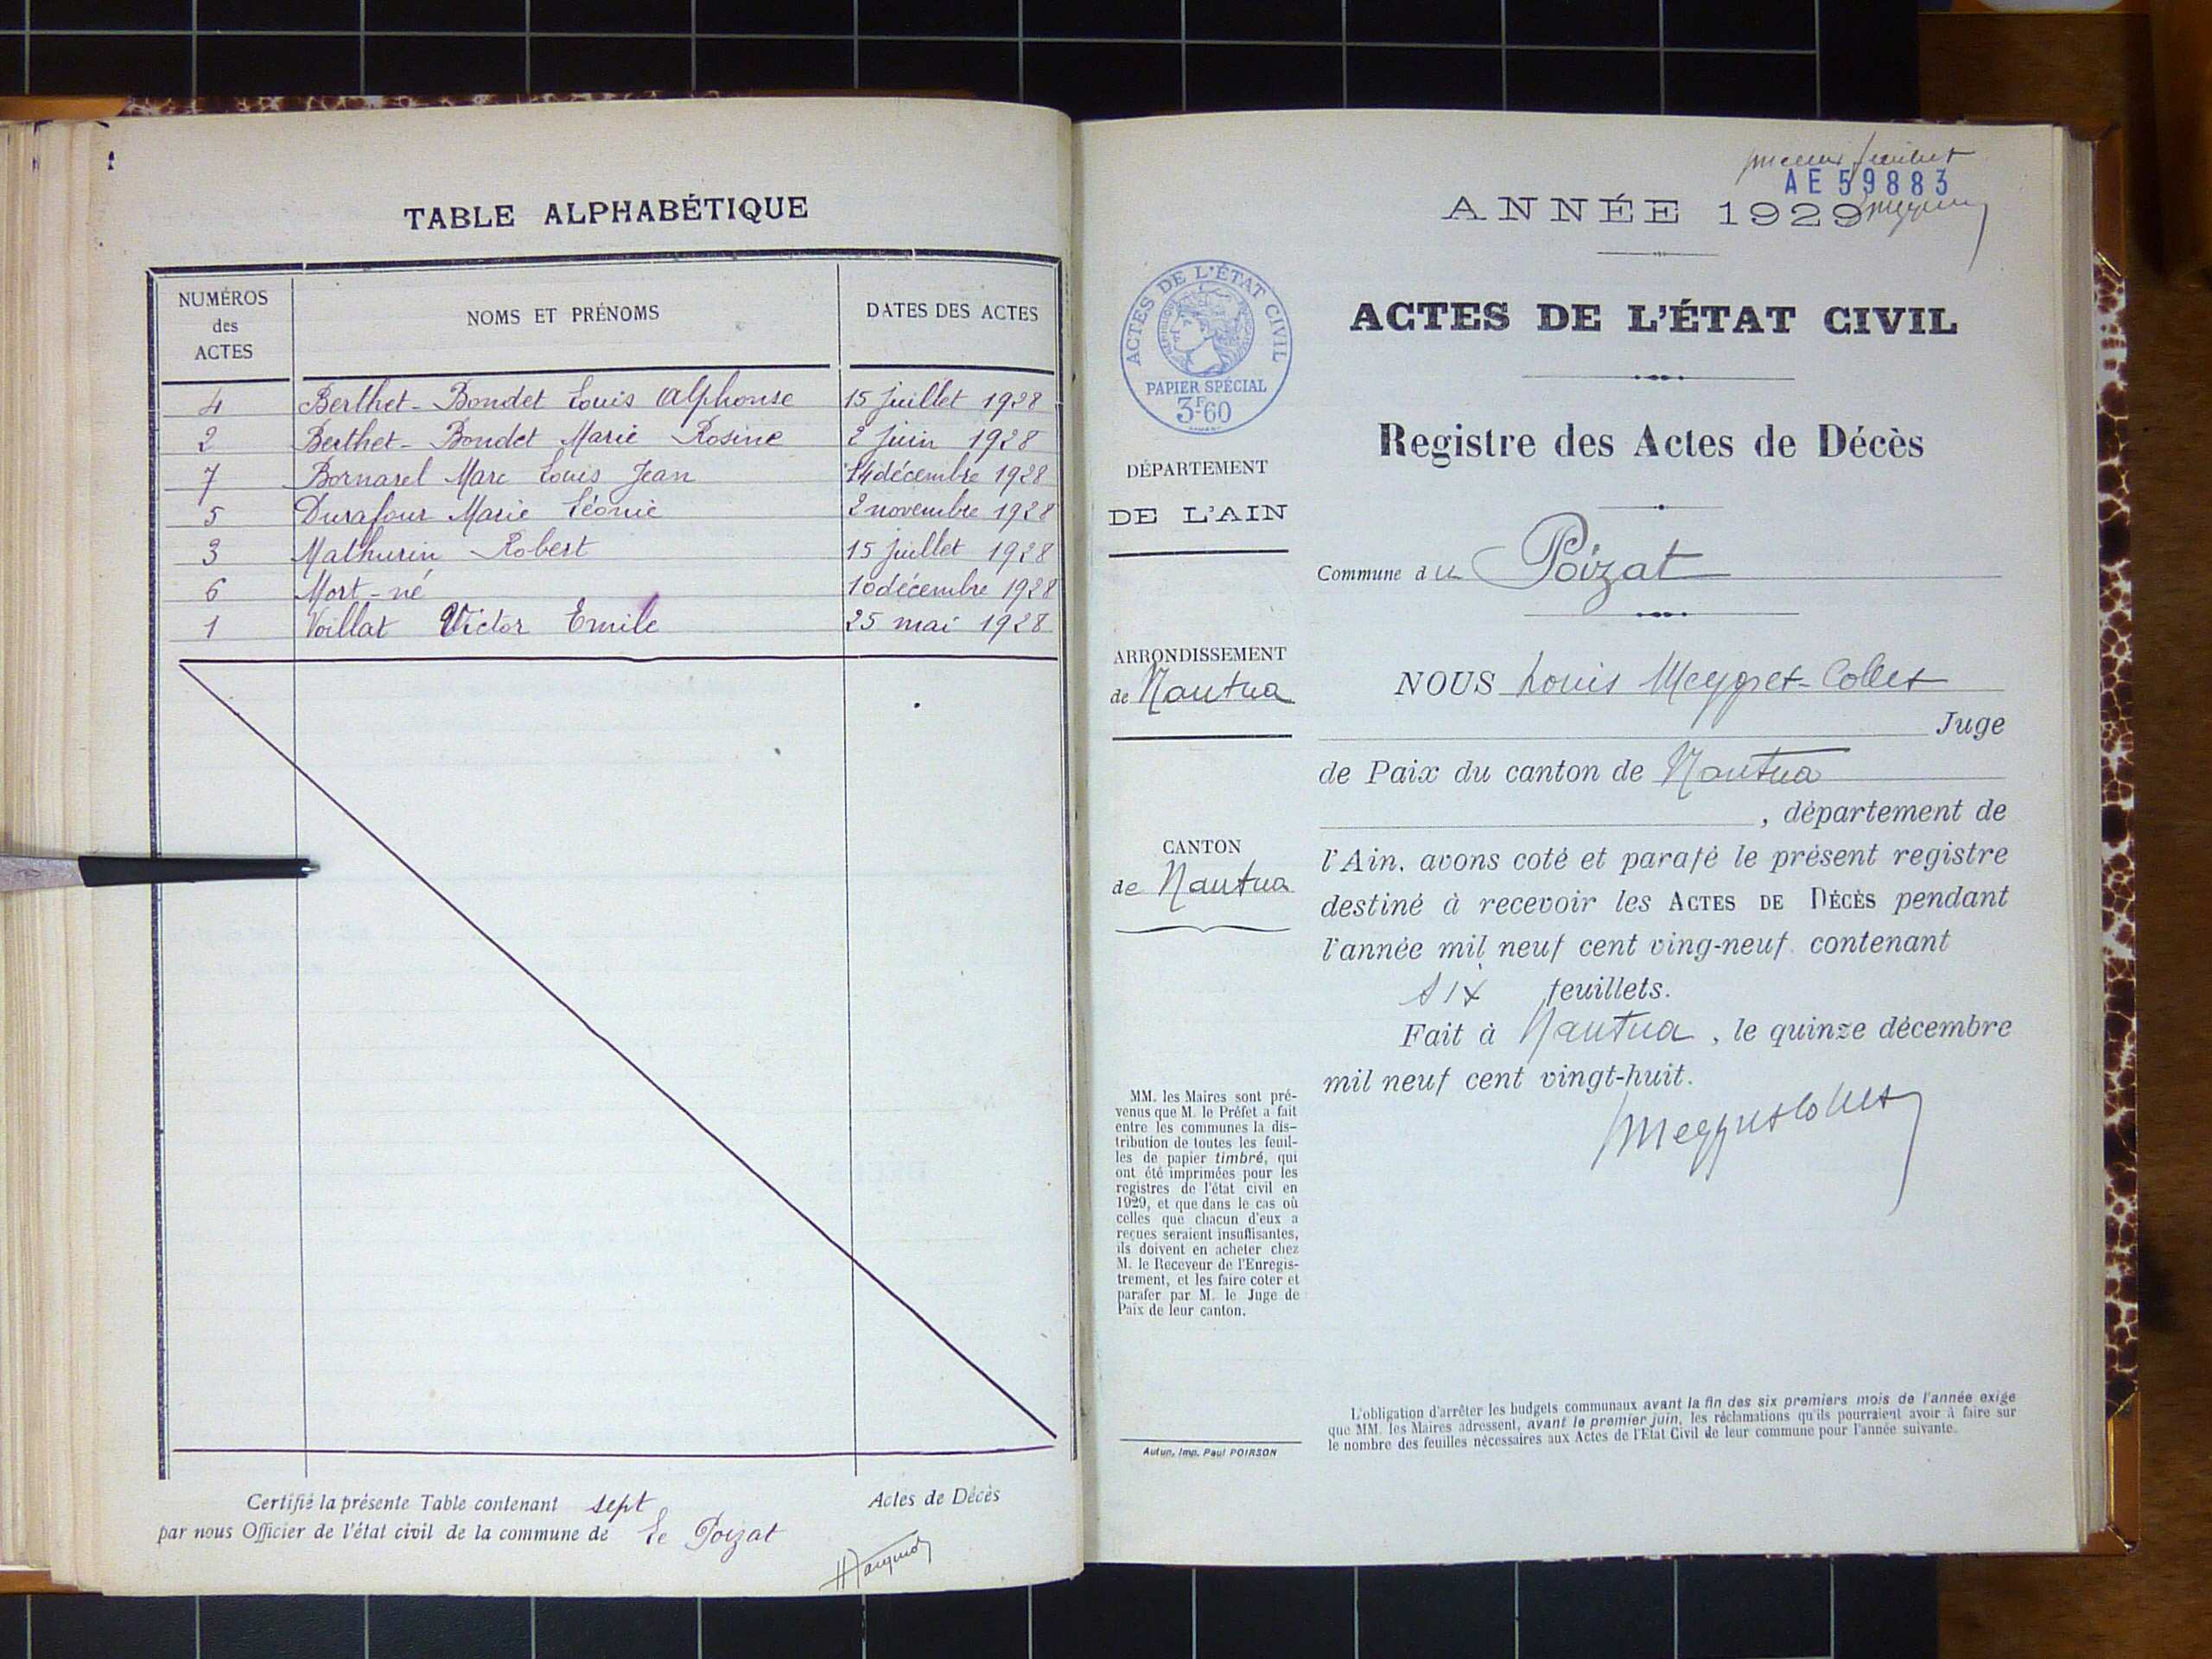 TABLE ALPHABÉTIQUE
NUMÉROS des ACTES NOMS ET PRÉNOMS DATES DES ACTES
4 Berthet-Bondet Louis Alphonse 15 juillet 1928
2 Berthet-Bondet Marie Rosine 2 juin 1928
7 Bornarel Marc Louis Jean 14 décembre 1928
5 Durafour Marie Léonie 2 novembre 1928
3 Mathurin Robert 15 juillet 1928
6 Mort-né 10 décembre 1928
1 Voillat Victor Emile 25 mai 1928
Certifié la présente Table contenant sept Actes de Décès
par nous Officier de l'état civil de la commune de Le Poizat
AE 59883
ANNÉE 1929
ACTES DE L'ÉTAT CIVIL
PAPIER SPÉCIAL
3F.60
DÉPARTEMENT
DE L'AIN
ARRONDISSEMENT
de Nantua
CANTON
de Nantua
MM. les Maires sont pré-
venus que M. le Préfet a fait
entre les communes la dis-
tribution de toutes les feuil-
les de papier timbré, qui
ont été imprimées pour les
registres de l'état civil en
1929, et que dans le cas où
celles que chacun d'eux a
reçues seraient insuffisantes,
ils doivent en acheter chez
M. le Receveur de l'Enregis-
trement, et les faire coter et
parafer par M. le Juge de
Paix de leur canton.
Autun, Imp. Paul POIRSON
ACTES DE L'ÉTAT CIVIL
Registre des Actes de Décès
Commune du Poizat
NOUS Louis Meygret-Collet
Juge
de Paix du canton de Nantua
, département de
l'Ain, avons coté et parafé le présent registre
destiné à recevoir les ACTES DE DÉCÈS pendant
l'année mil neuf cent ving-neuf contenant
six feuillets.
Fait à Nantua, le quinze décembre
mil neuf cent vingt-huit.
L'obligation d'arrêter les budgets communaux avant la fin des six premiers mois de l'année exige
que MM. les Maires adressent, avant le premier juin, les réclamations qu'ils pourraient avoir à faire sur
le nombre des feuilles nécessaires aux Actes de l'Etat Civil de leur commune pour l'année suivante.